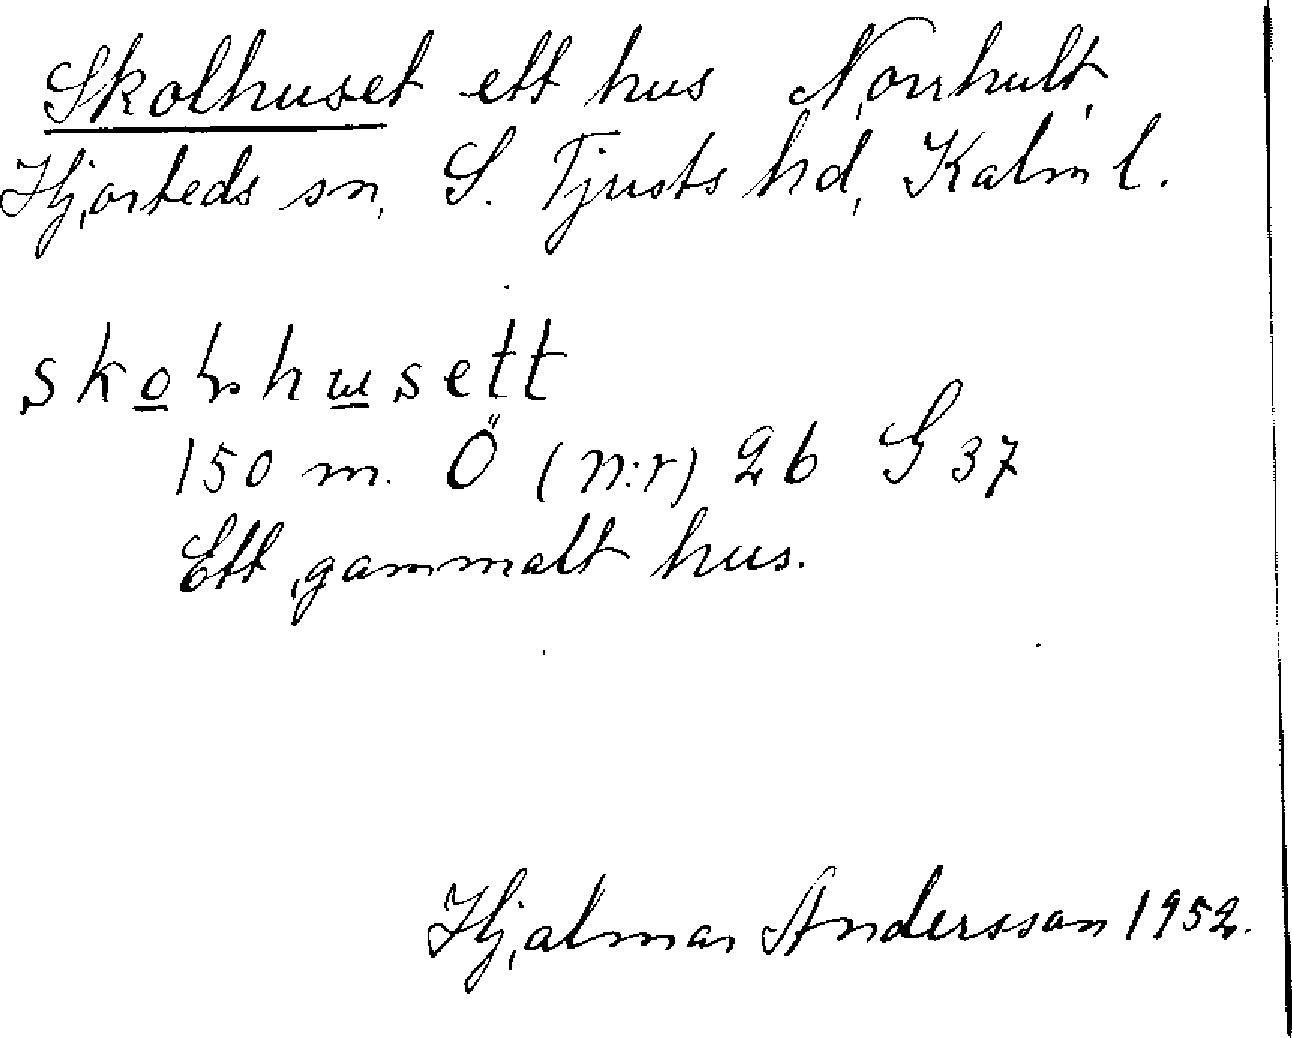 Skolhuset ett hus Norrhult,
Hjorteds sn, S. Tjusts hd, Kalm l.
150 m. Ö (n:r) 26 G 37
Ett gammalt hus.
Hjalmar Andersson 1952.